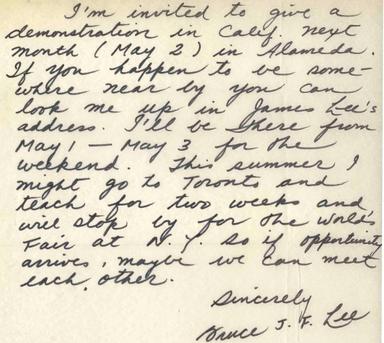 I'm invited to give a
demonstration in Calif. next
month (May 2) in Alameda.
If you happen to be some-
where near by you can
look me up in James Lee's
address. I'll be there from
May 1 — May 3 for the
weekend. This summer I
might go to Toronto and
teach for two weeks and
will stop by for the world's
Fair at N.Y. So if opportunity
arrives, maybe we can meet
each other.
Sincerely
Bruce J. F. Lee